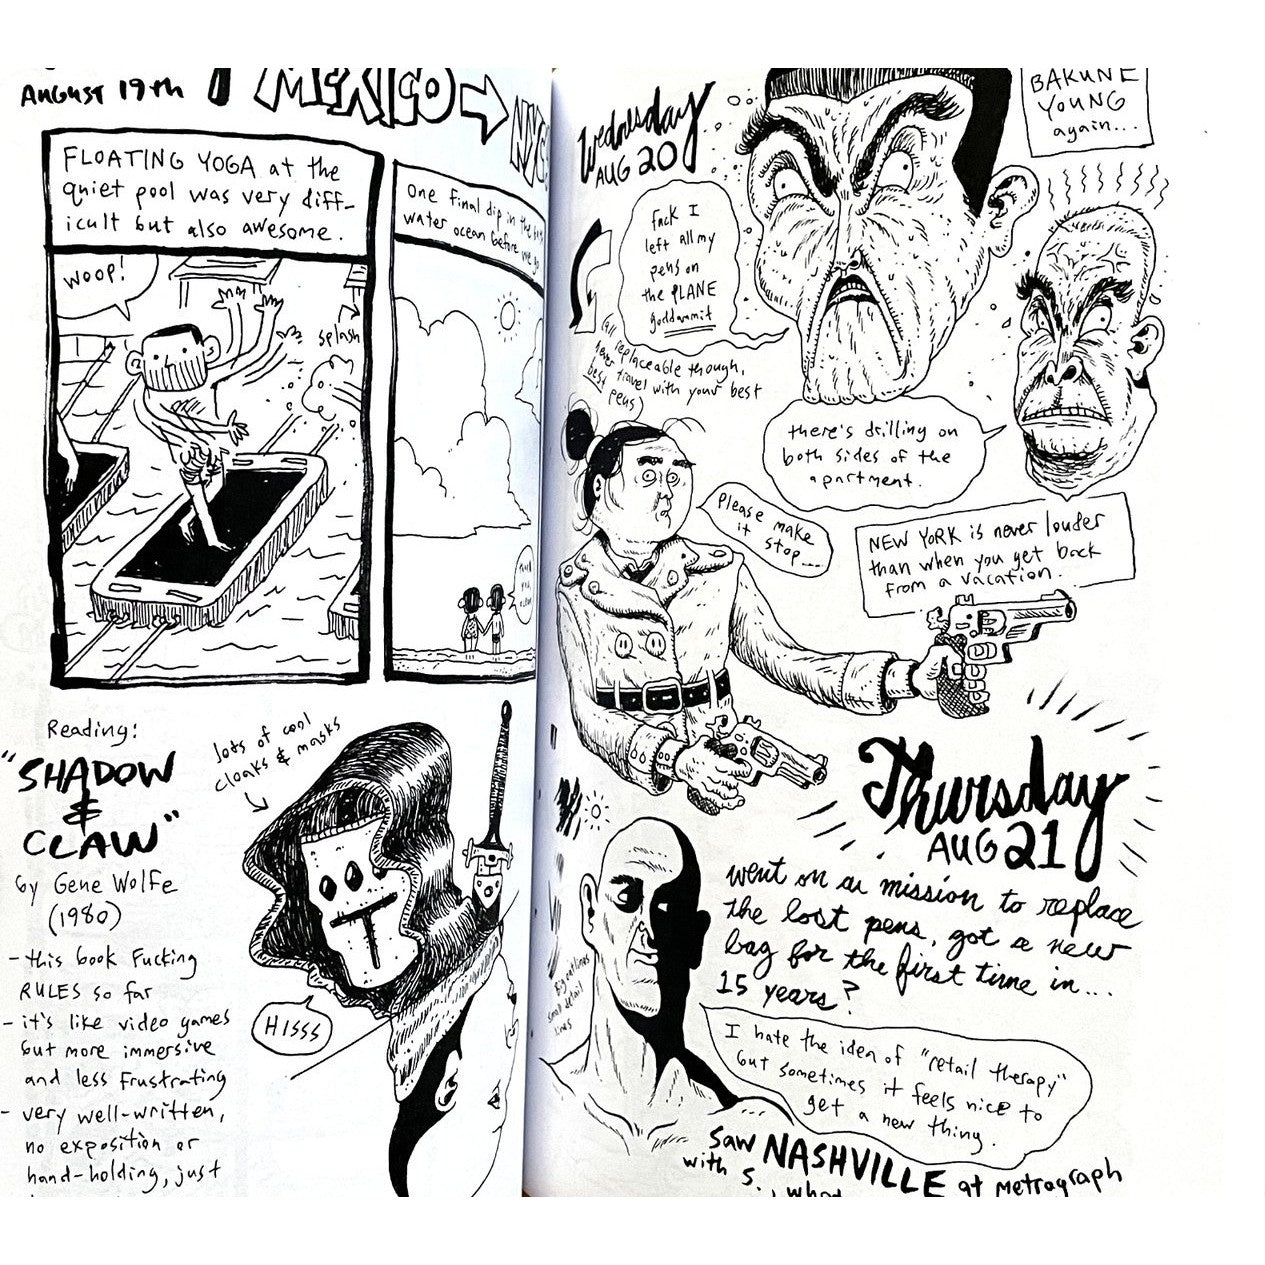 AUGUST 19th
MEXICO →
NYC
FLOATING YOGA at the
quiet pool was very diff-
icult but also awesome.
WOOP!
splash
One final dip in the
water ocean before we go
thank
you
Reading:
"SHADOW
&
CLAW"
by Gene Wolfe
(1980)
- this book Fucking
RULES so far
- it's like video games
but more immersive
and less frustrating
- very well-written,
no exposition or
hand-holding, just
lots of cool
cloaks & masks
HISSS
Wednesday
AUG 20
fuck I
left all my
pens on
the PLANE
goddammit
replaceable though,
never travel with your best
best pens
BAKUNE
YOUNG
again...
there's drilling on
both sides of the
apartment.
Please make
it stop...
NEW YORK is never louder
than when you get back
from a vacation.
Thursday
AUG 21
went on a mission to replace
the lost pens, got a new
bag for the first time in...
15 years?
Big outlines
small detail
lines
I hate the idea of "retail therapy"
but sometimes it feels nice to
get a new thing.
Saw NASHVILLE at metrograph
with S., what